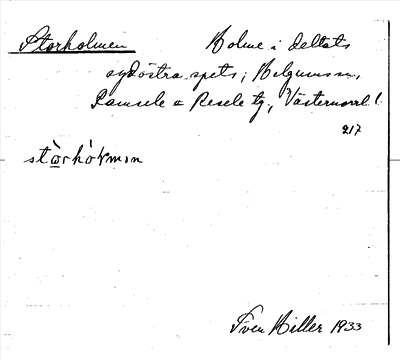 Storholmen Holme i deltats
sydöstra spets; Helgumssn,
Ramsele o Resele tg, Västernorrl l.
217
stòrhòḷmən
Sven Hiller 1933